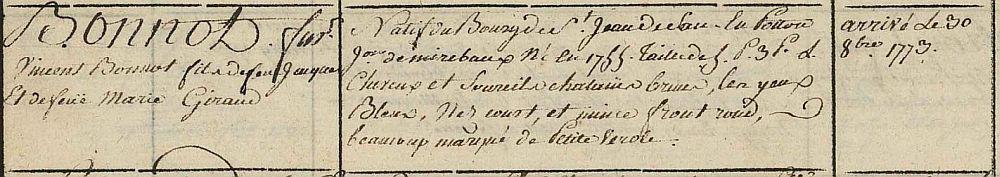 Bonnot. fus.r
Vincent Bonnot fils de feu Jacques
Et de feüe Marie Giraud
Natif du Bourg de St. Jean de Sau En Poitou
Jon. de mirebaux Né En 1755 Taille de 5. P. 3 P. L.
Cheveux et Sourcils chatains bruns, les yeux
Bleux, Nez court, et mince front rond,
beaucoup marqué de Petite Verole.
arrivé Le 30
8bre. 1773.